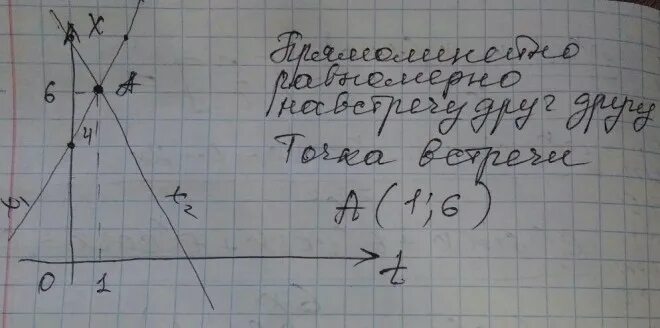 X
Прямолинейно
равномерно
навстречу друг другу
6
A
4
Точка встречи
t₂
A (1; 6)
0 1 t